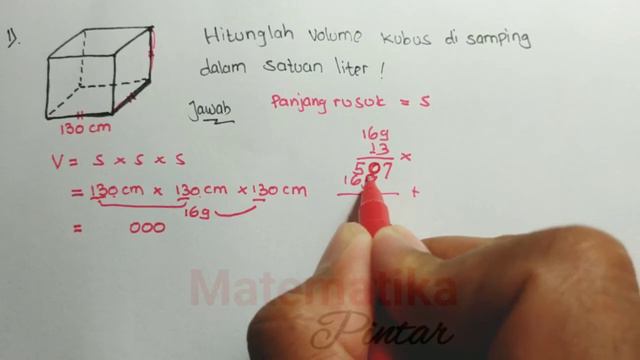 1). Hitunglah volume kubus di samping
dalam satuan liter !
Jawab Panjang rusuk = s
130 cm
169
13 ×
507
V = s × s × s
= 130 cm × 130 cm × 130 cm
169
= 000
+
Matematika
Pintar